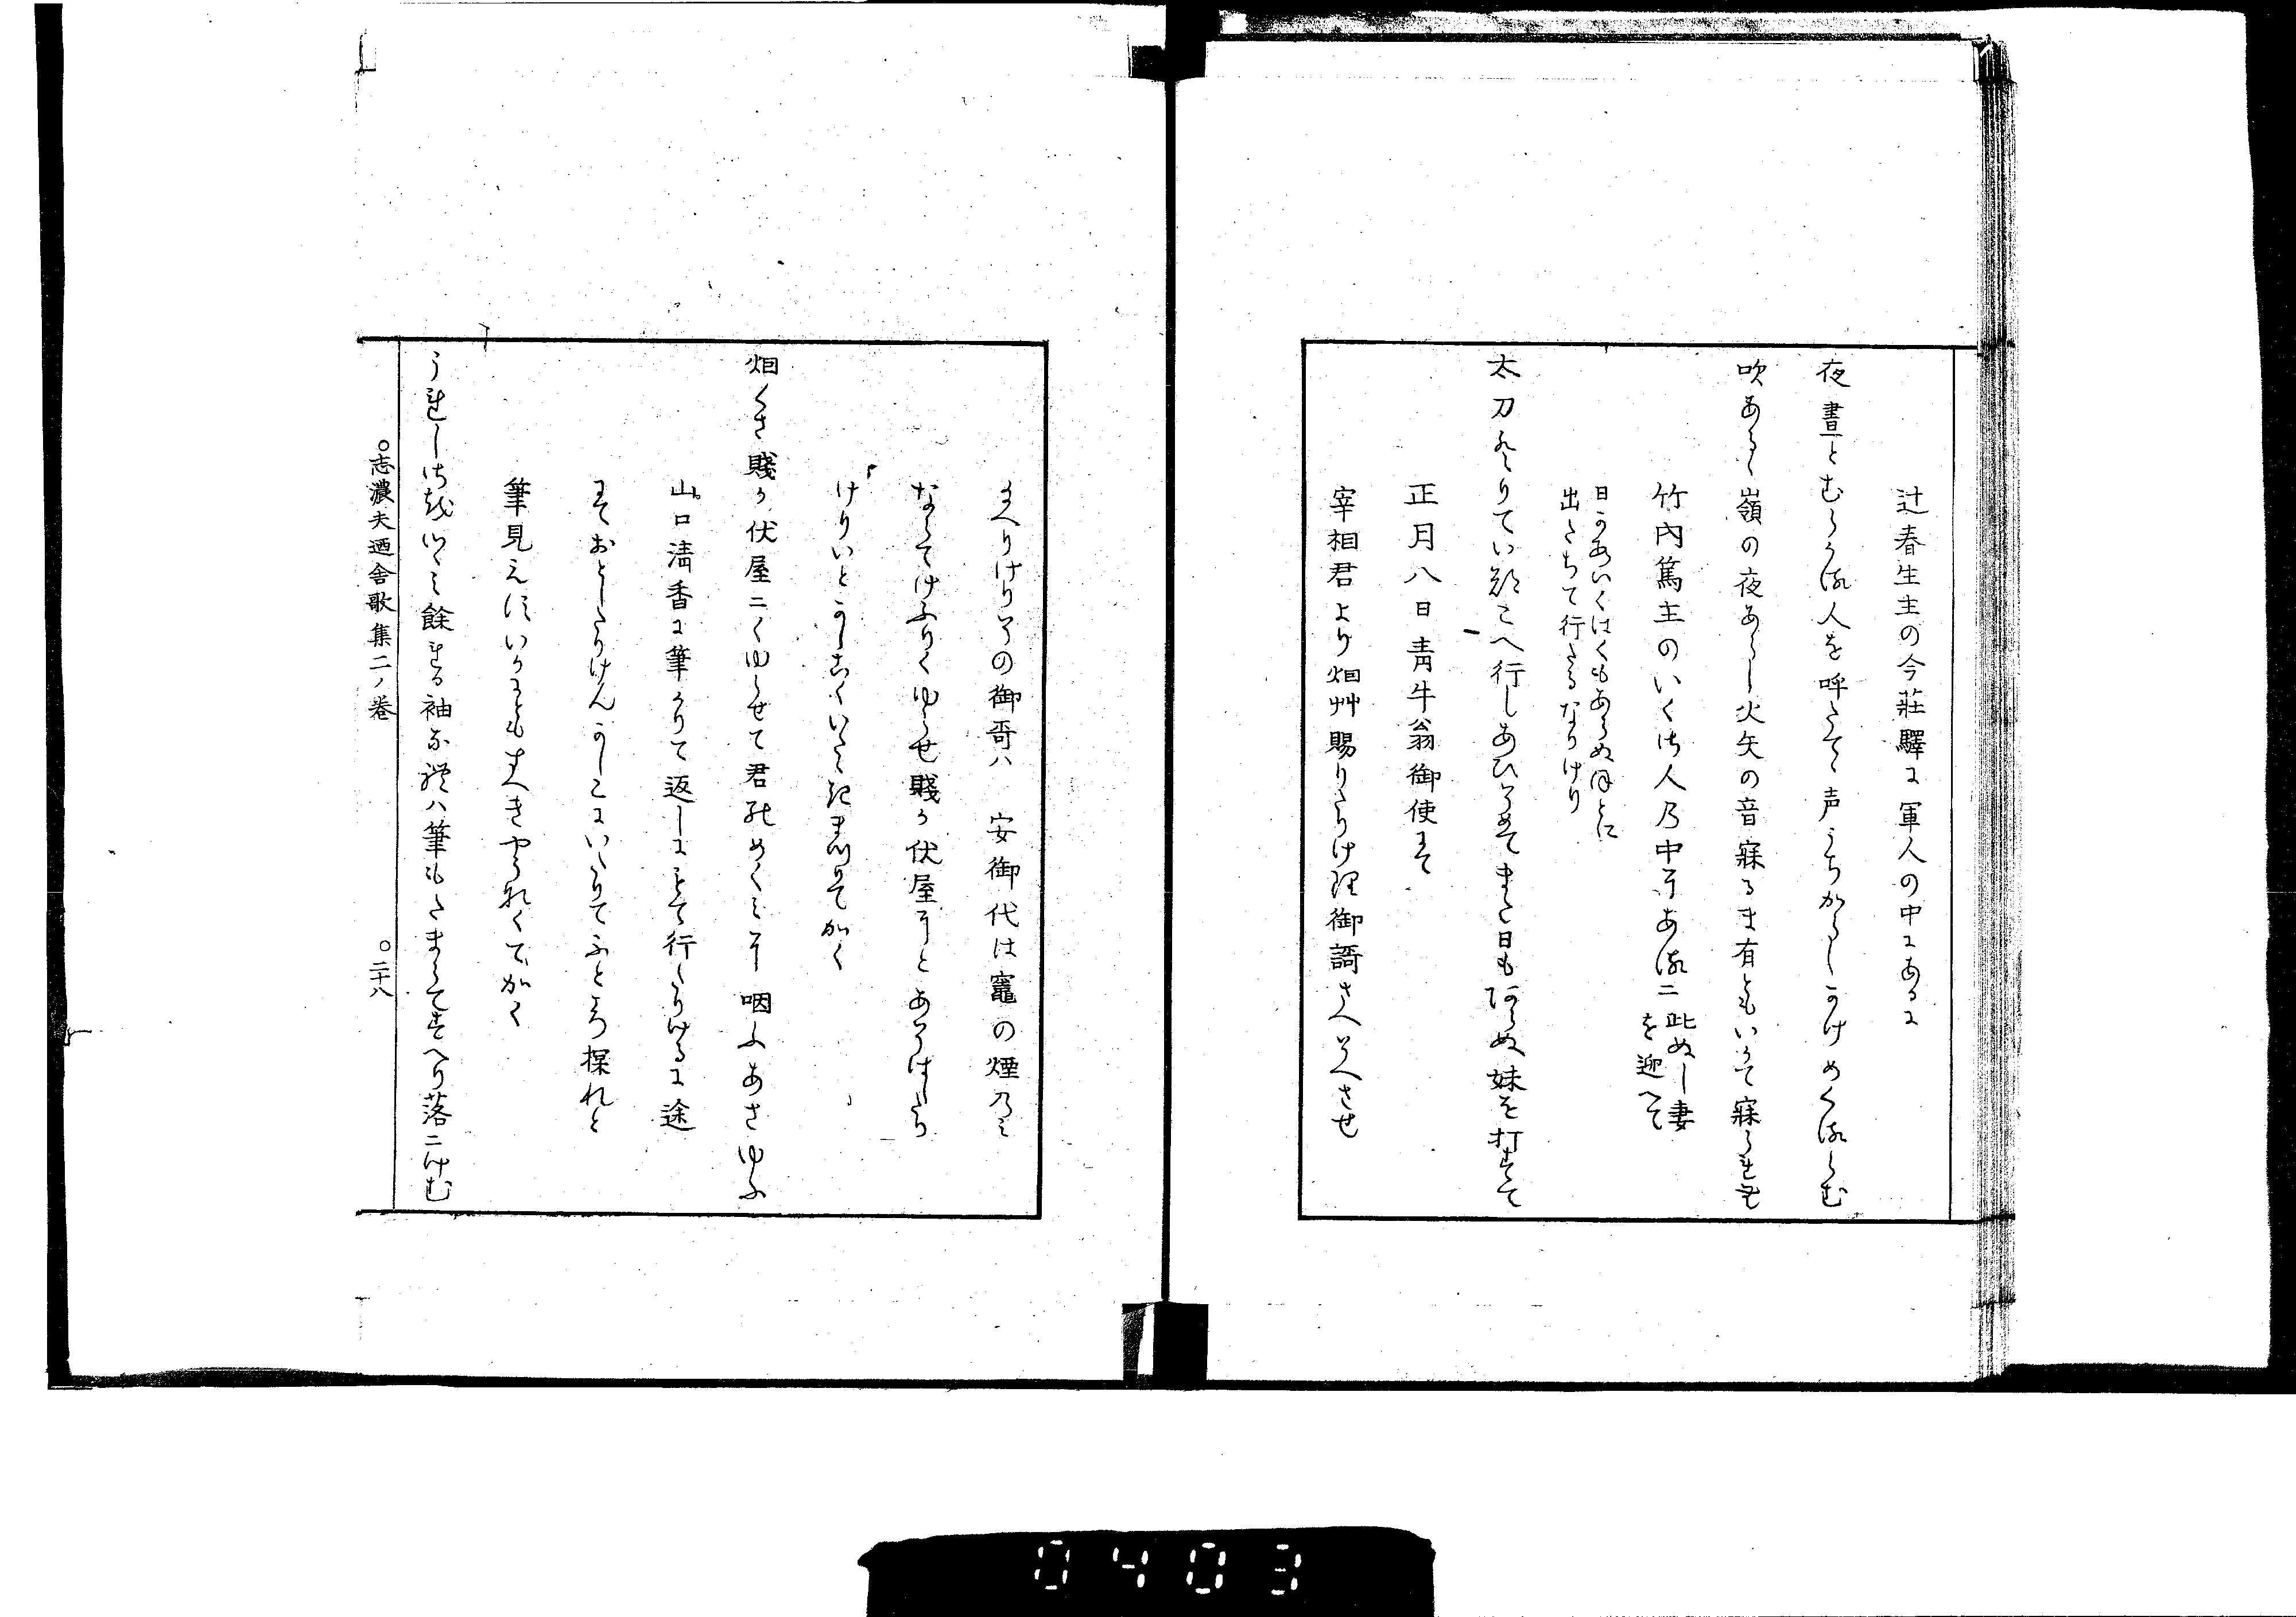 辻春生主の今莊驛に軍人の中にあるに
夜晝とむらかる人を呼たてゝ声うちからしかけめくるらむ
吹あるゝ嶺の夜あらし火矢の音寐るま有ともいかて寐られむ
竹內篤主のいくさ人乃中にあるニ此ぬし妻を迎へて
日かあいくはくもあらぬほとに
出たちて行たるなりけり
太刀とりていつこへ行しあひそめてまた日もあらぬ妹を打すてて
正月八日靑牛翁御使にて
宰相君より烟艸賜りたりける御謌さへそへさせ
たまへりけりその御哥ハ 安御代は竈の煙乃み
ならてけふりくゆらせ賤か伏屋にとあそはしたり
けりいとかしこくいたゝきまつりてかく
烟くさ賤か伏屋ニくゆらせて君のめくみに咽ふあさゆふ
山口淸香に筆かりて返しにとて行たりけるに途
にておとしたりけんかしこにいたりてふところ探れと
筆見えすいかにともすへきやうなくてかく
うれしさをつゝみ餘れる袖なれハ筆もたまらてすへり落ニけむ
○志濃夫廼舍歌集二ノ卷
○二十八
0403